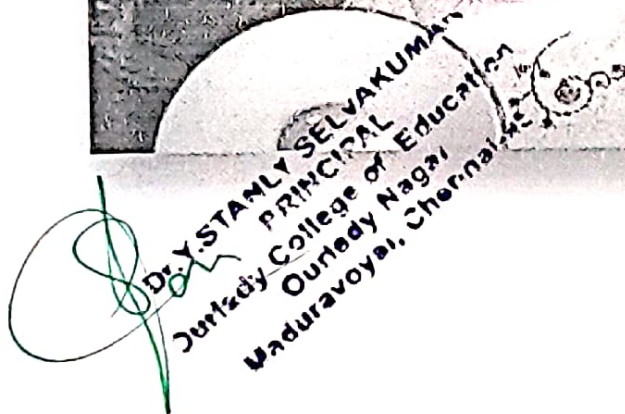 Dr. Y.STANLY SELVAKUMAR
PRINCIPAL
Ourlady College of Education
Ourlady Nagar
Maduravoyal, Chennai